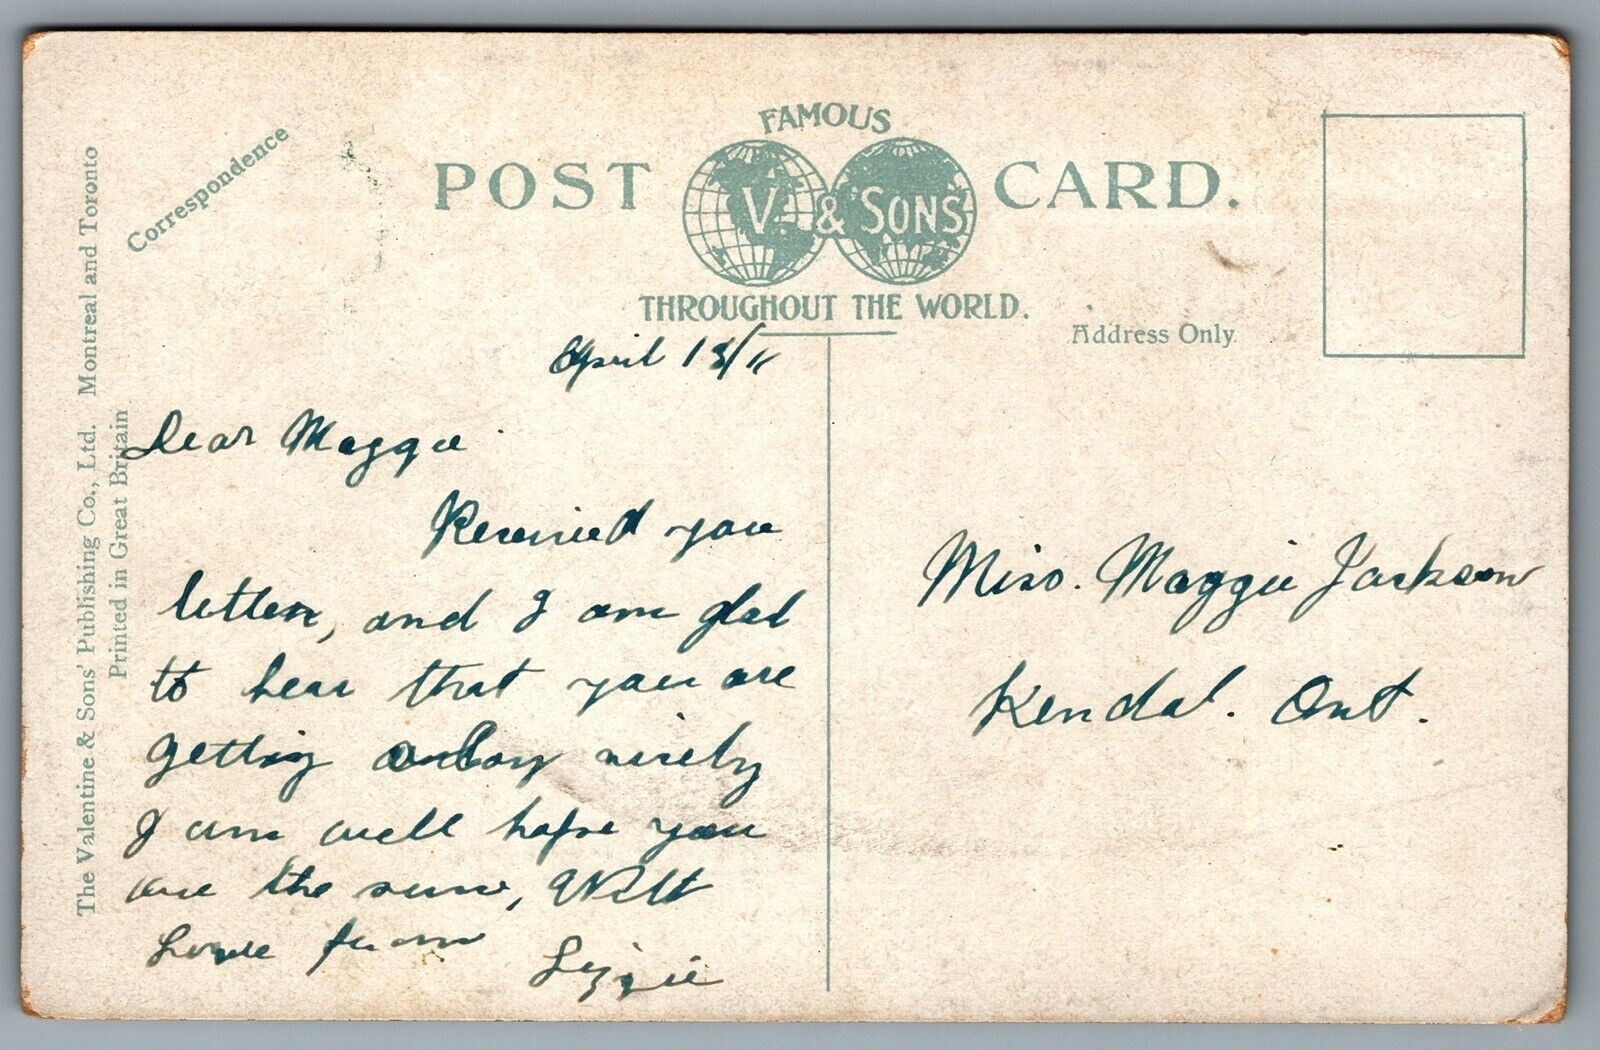 FAMOUS
POST V. & SONS CARD.
THROUGHOUT THE WORLD.
Correspondence
Address Only.
The Valentine & Sons' Publishing Co., Ltd. Montreal and Toronto
Printed in Great Britain
April 18/11
Dear Maggie
Received you
letter, and I am glad
to hear that you are
getting along nicely
I am well hope you
are the same, With
Love from
Lizzie
Miss. Maggie Jackson
Kendal. Ont.